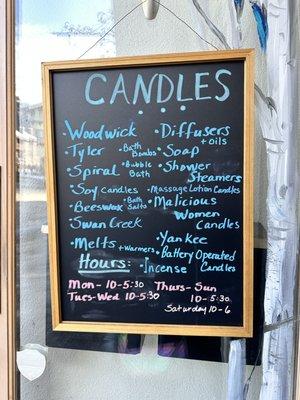 CANDLES
• Woodwick
• Tyler
• Spiral
• Soy candles
• Beeswax
• Swan Creek
• Melts + Warmers
• Bath Bombs
• Bubble Bath
• Bath Salts
• Diffusers + oils
• Soap
• Shower Steamers
• Massage Lotion Candles
• Malicious Women Candles
• Yankee
• Battery Operated Candles
• Incense
Hours:
Mon - 10-5:30
Tues-Wed 10-5:30
Thurs-Sun
10-5:30
Saturday 10-6